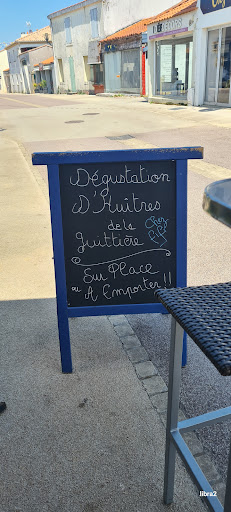 Dégustation
D'Huîtres
de la
guittière
Sur Place
ou A Emporter !!
libra2